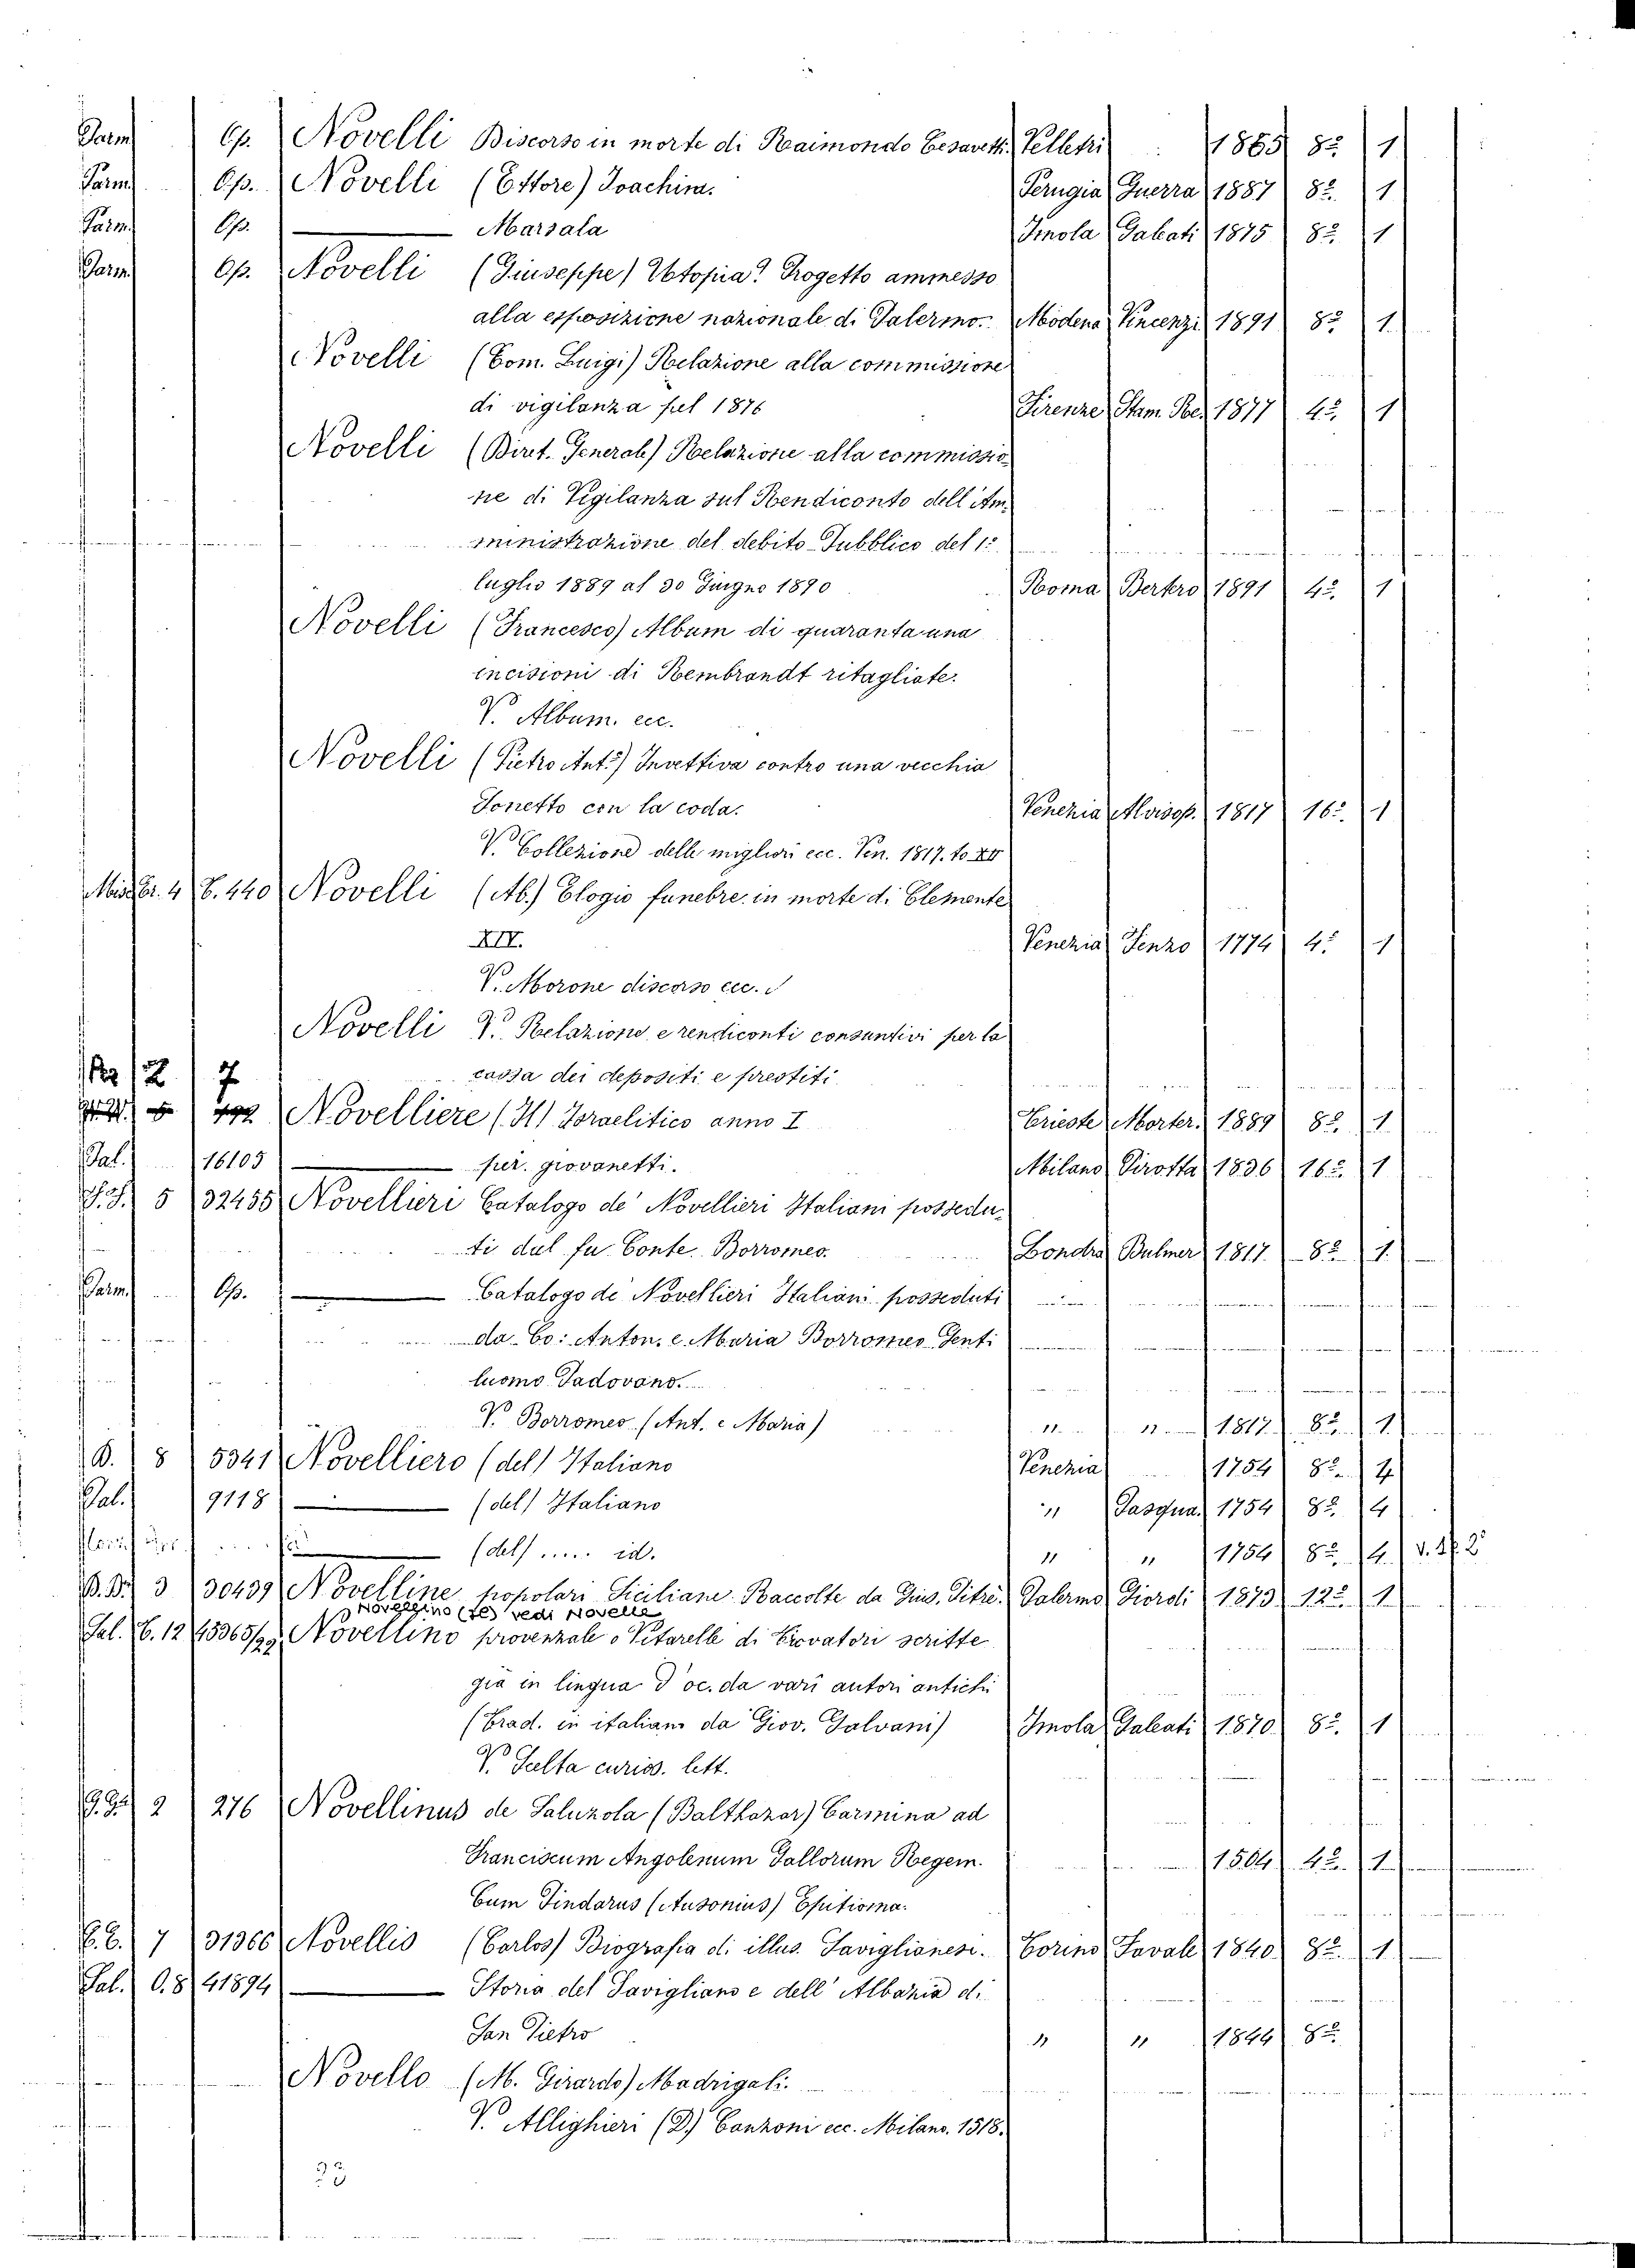 Parm Op. Novelli Discorso in morte di Raimondo Cesaretti. Velletri 1865 8º 1
Parm. Op. Novelli (Ettore) Joachim. Perugia Guerra 1887 8º. 1
Parm. Op. ——— Marsala Imola Galeati 1875 8º 1
Parm. Op. Novelli (Giuseppe) Utopia? Progetto ammesso
alla esposizione nazionale di Palermo. Modena Vincenzi 1891 8º 1.
Novelli (Com. Luigi) Relazione alla commissione
di vigilanza pel 1876 Firenze Stam. Re. 1877 4º. 1
Novelli (Diret. Generale) Relazione alla commissio-
ne di Vigilanza sul Rendiconto dell'Am-
ministrazione del debito Pubblico del 1º
luglio 1889 al 30 Giugno 1890 Roma Bertero 1891 4º. 1
Novelli (Francesco) Album di quaranta una
incisioni di Rembrandt ritagliate.
V. Album. ecc.
Novelli (Pietro Ant.º) Invettiva contro una vecchia
Sonetto con la coda. Venezia Alvisop. 1817 16º. 1
V. Collezione delle migliori ecc. Ven. 1817. to XII
Misc. Er. 4 B. 440 Novelli (Ab.) Elogio funebre in morte di Clemente
XIV. Venezia Fenzo 1774 4º 1
V. Morone discorso ecc.
Novelli V. Relazione e rendiconti consuntivi per la
2 7 cassa dei depositi e prestiti
Novelliere (Il) Israelitico anno I Trieste Morter. 1889 8º. 1.
Pal. 16105 ——— per. giovanetti. Milano Pirotta 1836 16º. 1
5 32455 Novellieri Catalogo de' Novellieri Italiani possedu-
ti dal fu Conte Borromeo. Londra Bulmer 1817. 8º 1.
Parm. Op. ——— Catalogo de Novellieri Italiani posseduti
da Co: Anton. e Maria Borromeo Genti
luomo Padovano.
V. Borromeo (Ant. e Maria) " " 1817. 8º. 1.
B. 8 5341 Novelliero (del) Italiano Venezia 1754 8º. 4
Pal. 9118 ——— (del) Italiano " Pasqua. 1754 8º. 4
——— (del) ..... id. " " 1754 8º. 4.
B.B. 3 30439 Novelline popolari Siciliane Raccolte da Gius. Pitrè. Palermo Giordi 1873 12º. 1
Novellino (le) vedi Novelle
Pal. C. 12 45365/29 Novellino provenzale o Vitarelle di Trovatori scritte
già in lingua d'oc. da varii autori antichi
(Trad. in italiano da Giov. Galvani) Imola Galeati 1870. 8º. 1
V. Scelta curios. lett.
2 276 Novellinus de Saluzola (Balthazar) Carmina ad
Franciscum Angolenum Gallorum Regem. 1504 4º. 1
Cum Pindarus (Ausonius) Epitioma.
E.E. 7 31366 Novellis (Carlos) Biografia di illus. Saviglianesi. Torino Favale 1840 8º. 1
Pal. O.8 41894 ——— Storia del Savigliano e dell'Albazia di
San Pietro " " 1844 8º
Novello (M. Girardo) Madrigali.
V. Allighieri (D.) Canzoni ecc. Milano. 1518.
23